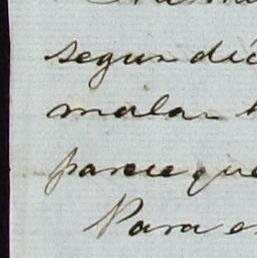 segun dic
mala
parece que
Para e